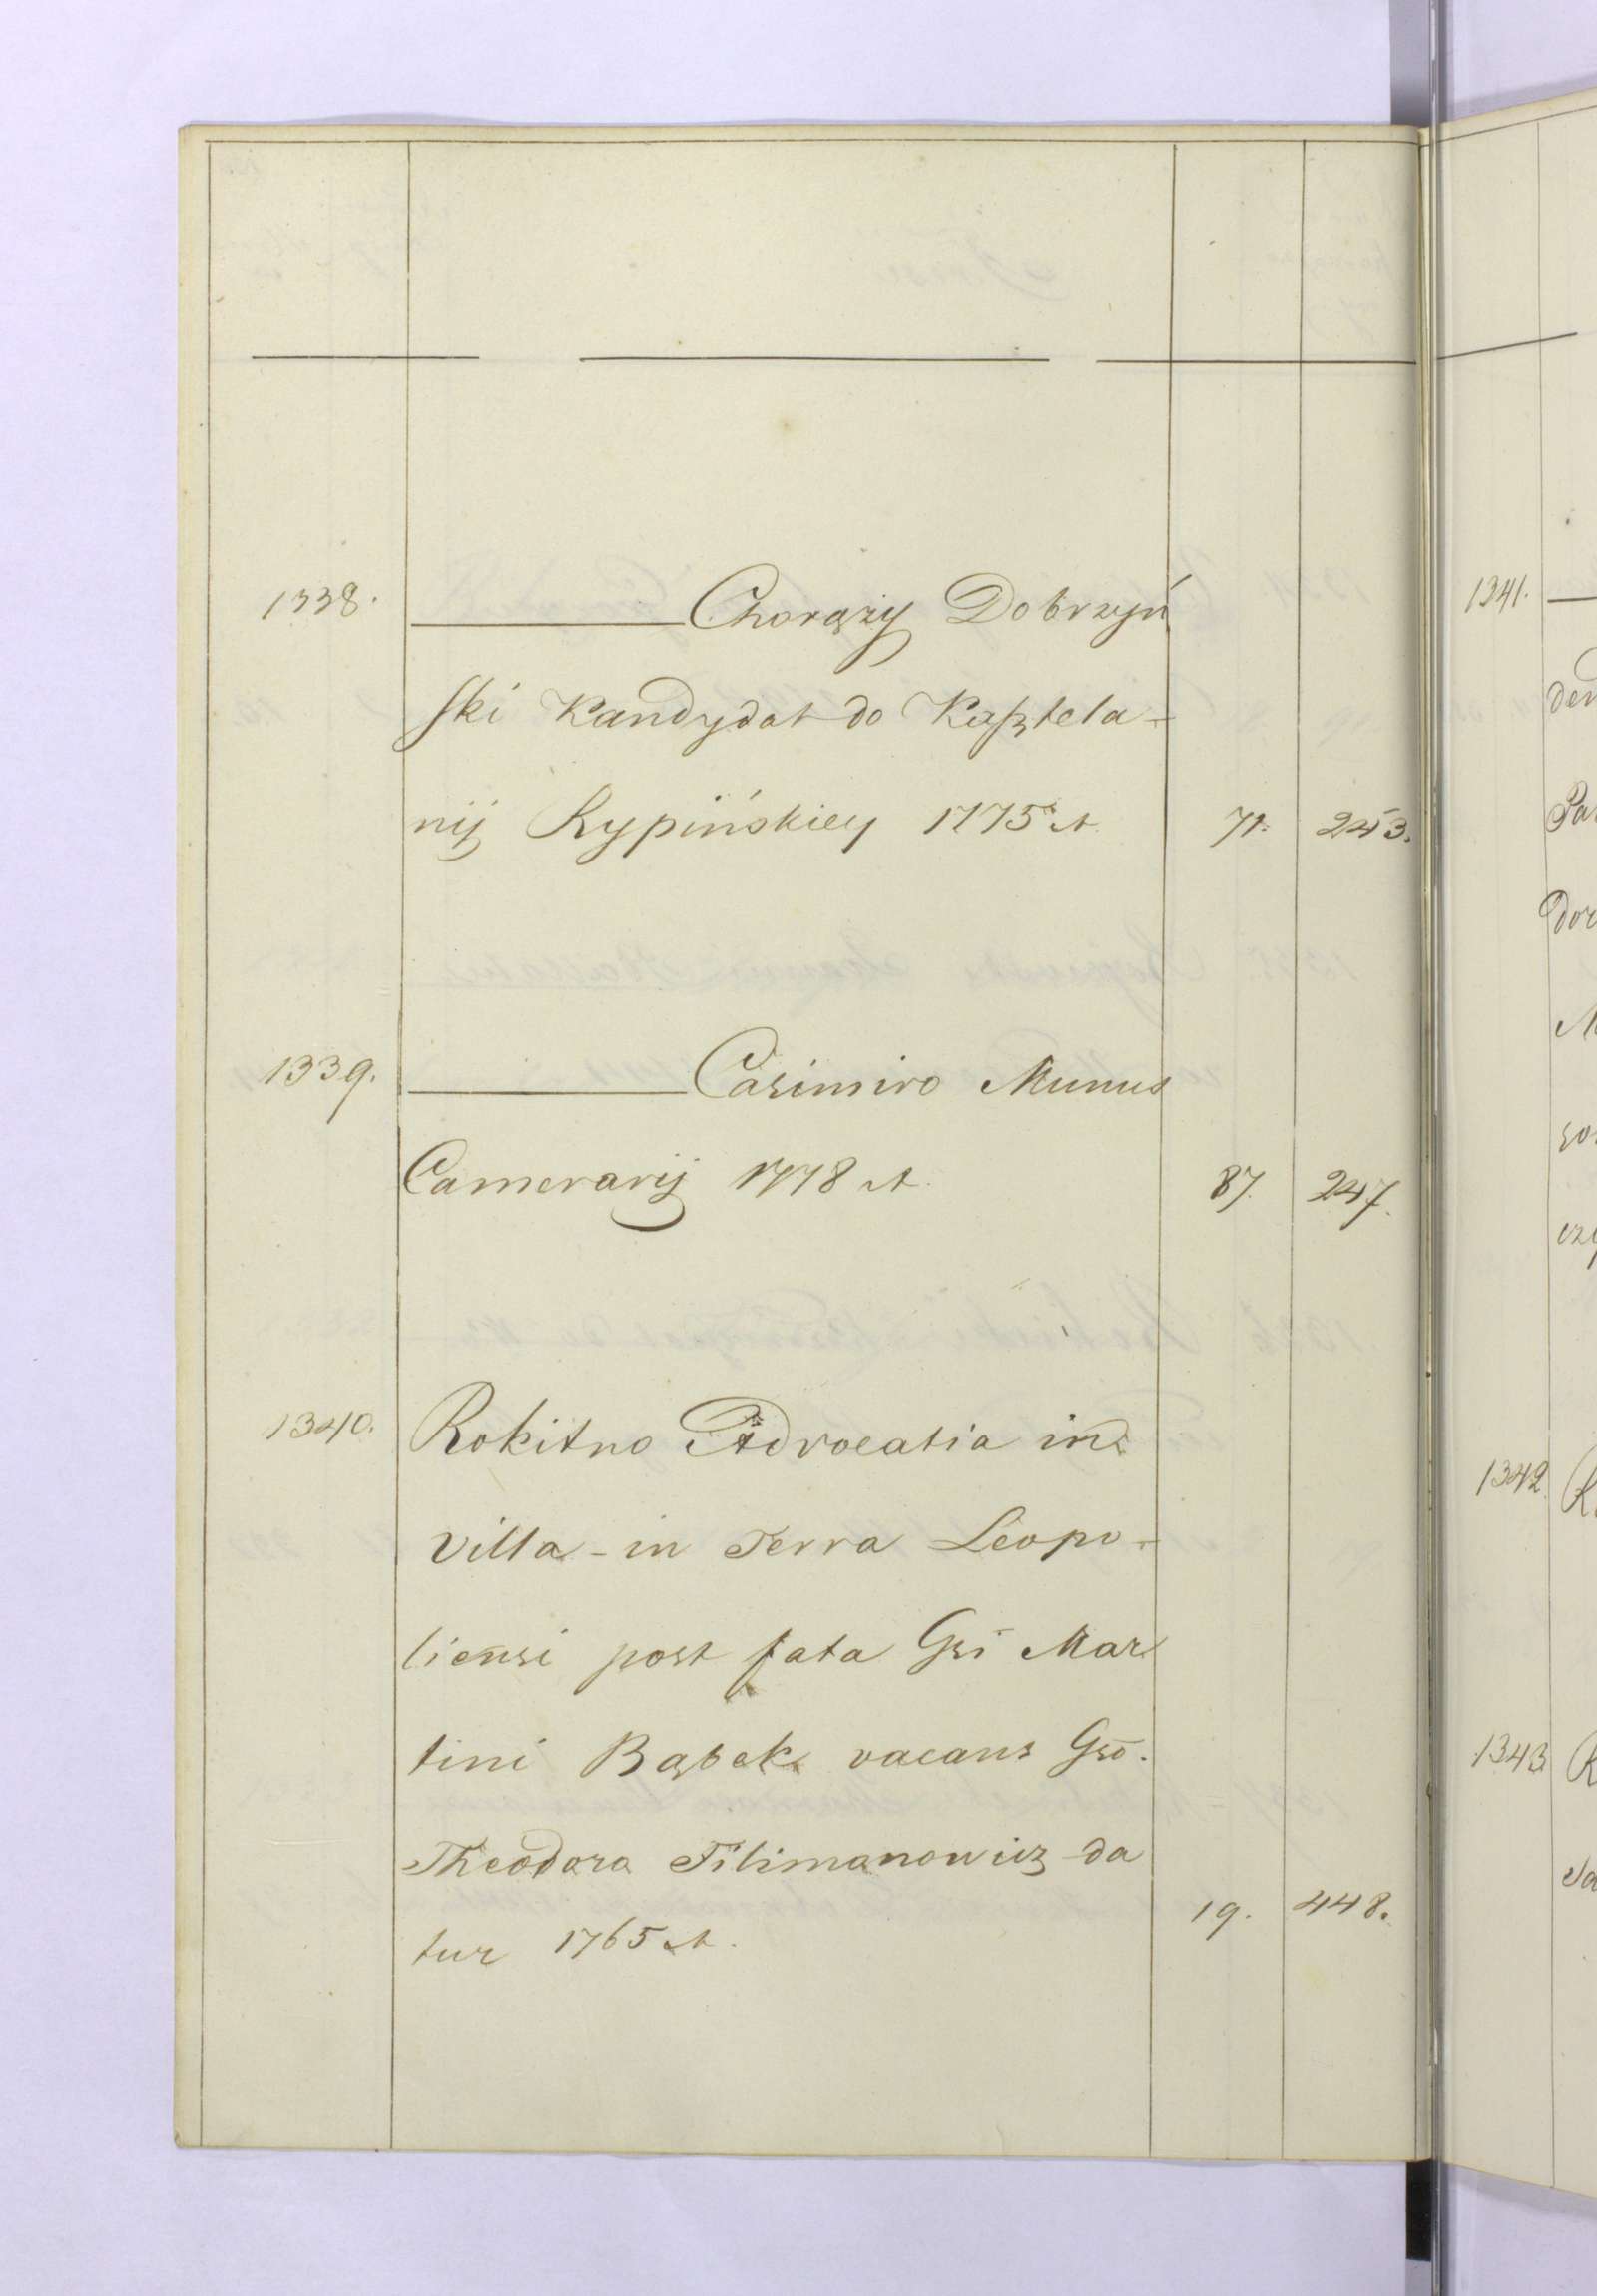 1338. ———— Chorąży Dobrzyń
ski Kandydat do Kasztela-
nij Rypińskiey 1775 A 71. 243.
1339. ———— Casimiro Munus
Camerarij 1778 A. 87. 247.
1340. Rokitno Advocatia in
Villa - in Terra Leopo-
liensi post fata Gsi Mar
tini Bąbek vacans Gso.
Theodoro Filimanowicz da
tur 1765 A. 19. 448.
1341.
1342.
1343